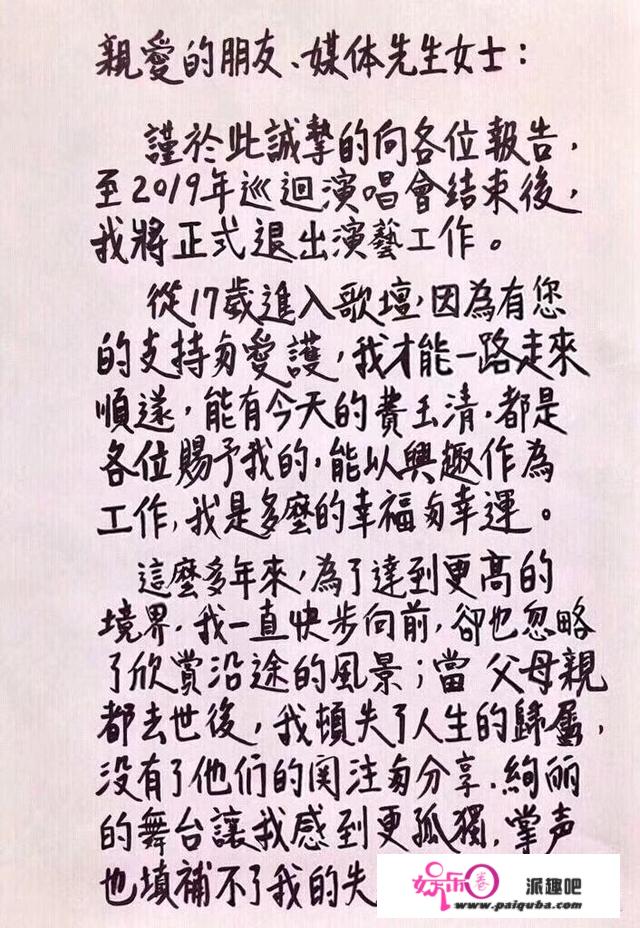 親愛的朋友、媒体先生女士：
謹於此誠摯的向各位報告，
至2019年巡迴演唱會結束後，
我將正式退出演藝工作。
從17歲進入歌壇，因為有您
的支持匆愛護，我才能一路走來
順遂，能有今天的費玉清，都是
各位賜予我的，能以興趣作為
工作，我是多麼的幸福匆幸運。
這麼多年來，為了達到更高的
境界，我一直快步向前，卻也忽略
了欣賞沿途的風景；當父母親
都去世後，我頓失了人生的歸屬，
没有了他们的関注匆分享，絢丽
的舞台讓我感到更孤獨，掌声
也填補不了我的失
娱币圈
派趣吧
www.paiquba.com